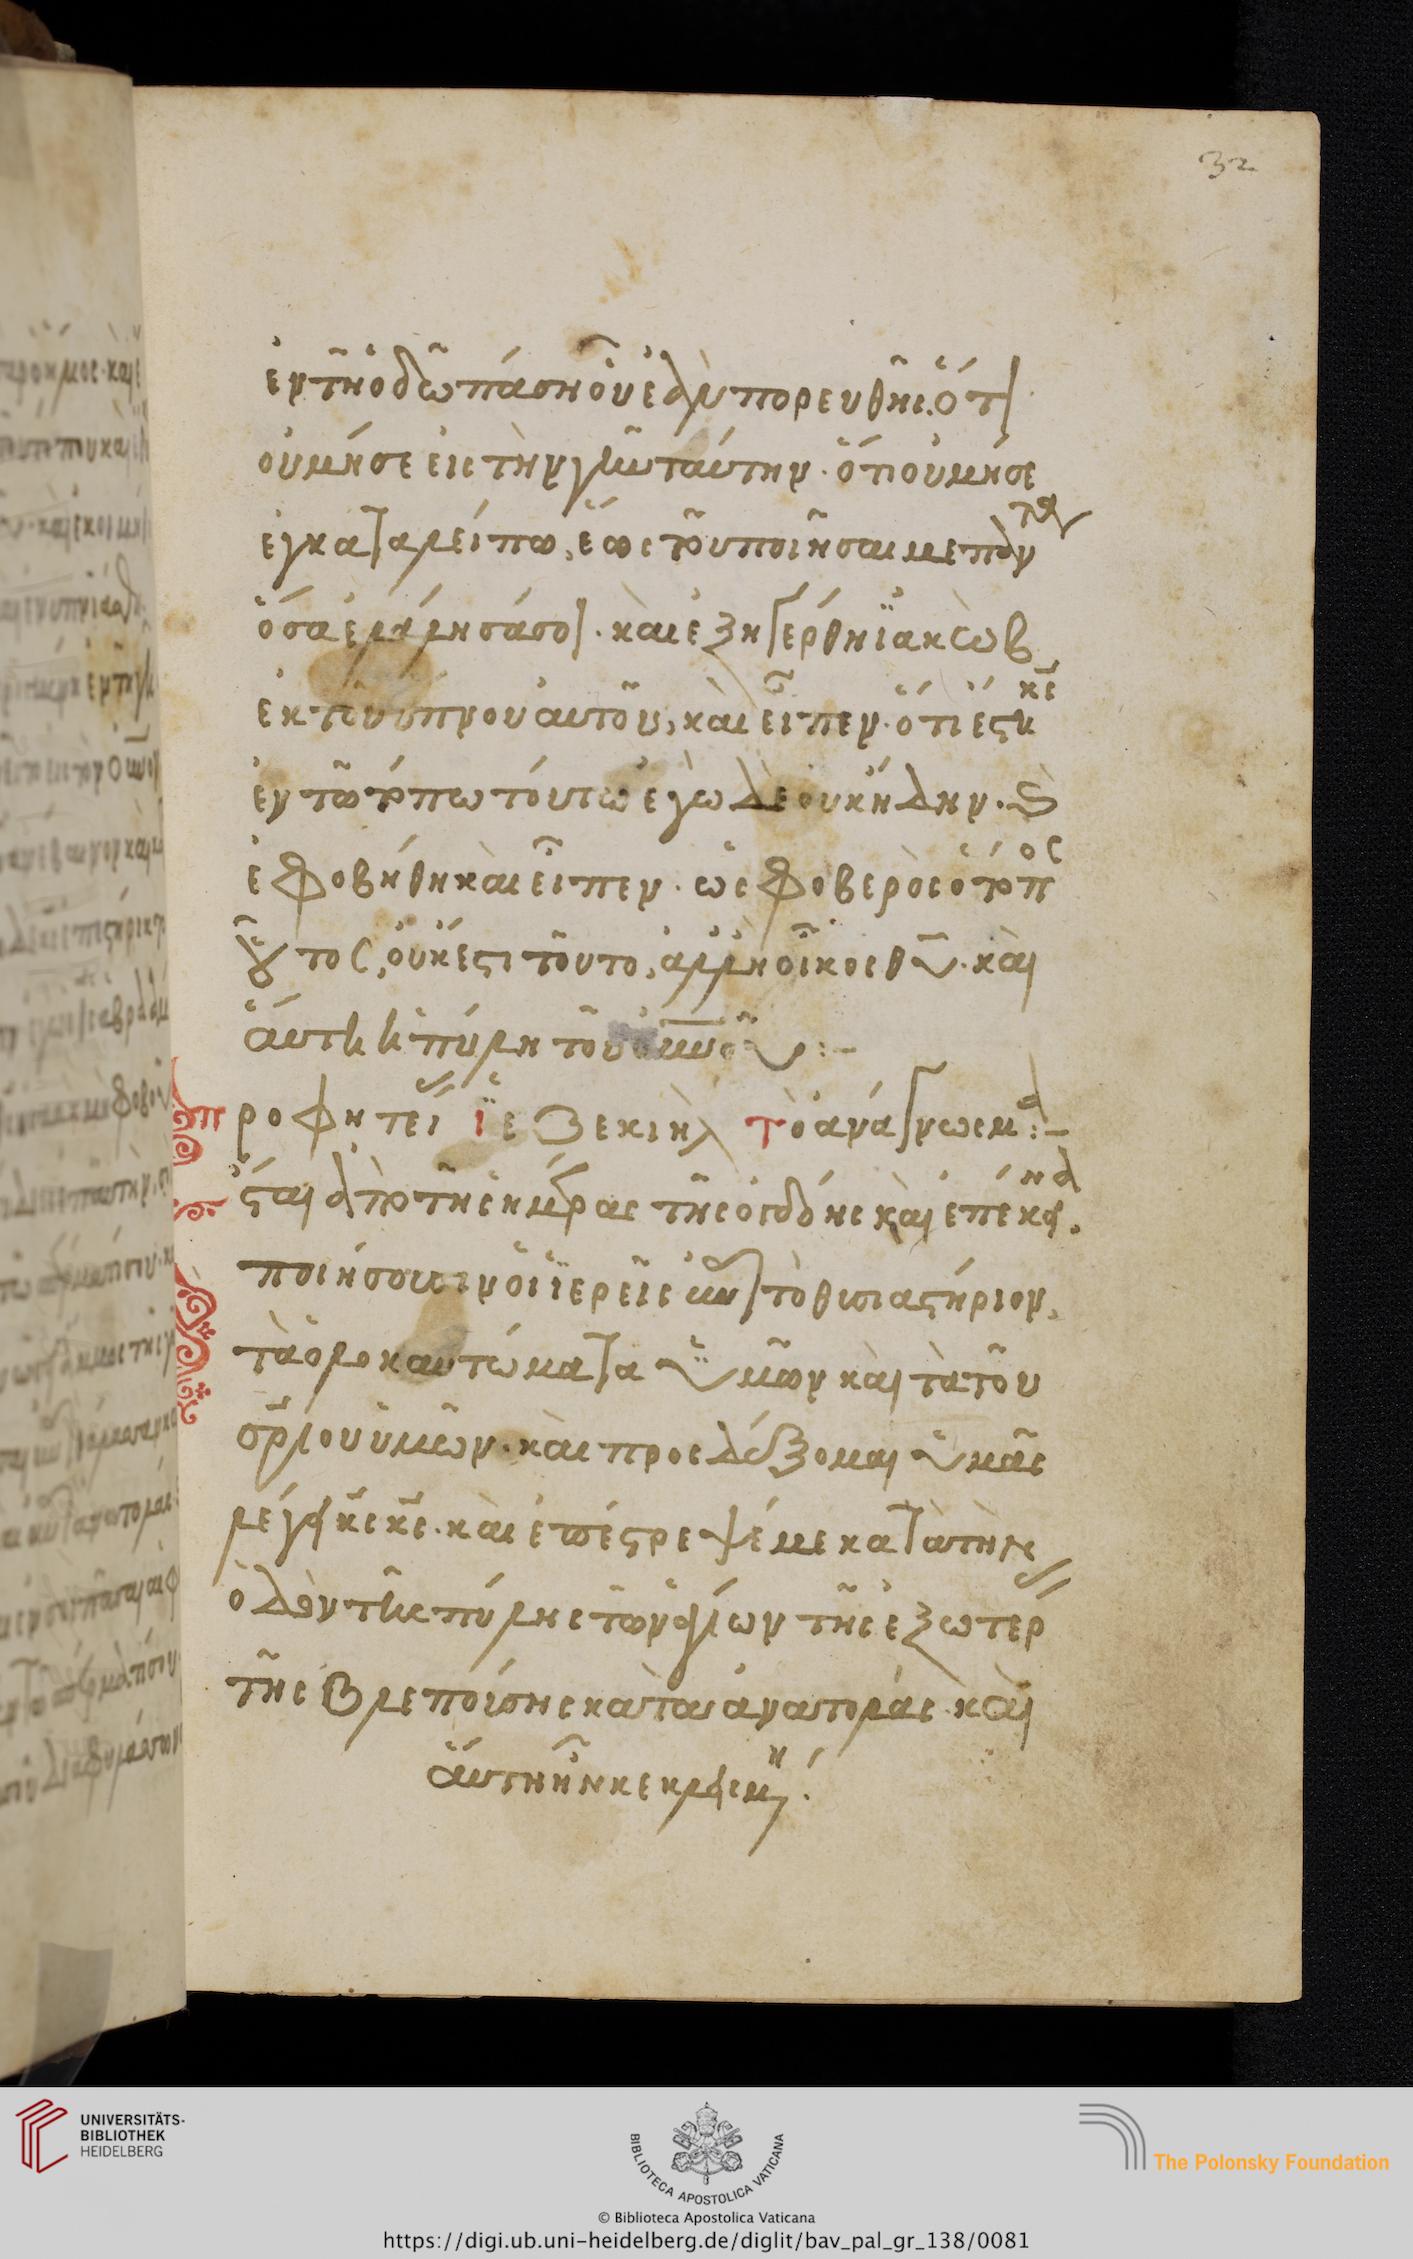 32
ἐν τῆ ὁδῶ πάση οὗ ἐὰν πορευθῆς. ὅτι
οὐ μήσε εἰς τὴν γῆν ταύτην. ὅτι οὐ μήσε
ἐγκαταλείπω, ἕως τοῦ ποιῆσαι με πάντα
ὅσα ἐλάλησά σοι. καὶ ἐξηγέρθη ϊακὼβ
ἐκ τοῦ ὕπνου αὐτοῦ, καὶ εἶπεν. ὅτι ἔστι κς
ἐν τῶ τόπω τούτω ἐγὼ δὲ οὐκ ἤδην. καὶ
ἐφοβήθη καὶ εἶπεν. ὡς φοβερὸς ὁ τόπος
οὗτος, οὐκ ἔστι τοῦτο, ἀλλ' ἢ οἶκος θυ. καὶ
αὕτη ἡ πύλη τοῦ οὐνοῦ :-
προφητεί ϊεζεκιὴλ τὸ ἀνάγνωσμα :-
ἔσται ἀπὸ τῆς ἡμέρας τῆς ὀγδόης καὶ ἐπέκεινα.
ποιήσουσιν οἱ ϊερεῖς ἐπὶ τὸ θυσιαστήριον,
τὰ ὁλοκαυτώματα ὑμῶν καὶ τὰ τοῦ
σρίου ὑμῶν. καὶ προσδέξομαι ὑμᾶς
λέγει κς κς. καὶ ἐπέστρεψέ με κατὰ τὴν
ὁδὸν τῆς πύλης τῶν ἁγίων τῆς ἐξωτέρ
τῆς βλεπούσης κατὰ ἀνατολάς. καὶ
αὕτη ἦν κεκλεισμένη.
UNIVERSITÄTS-
BIBLIOTHEK
HEIDELBERG
BIBLIOTECA APOSTOLICA VATICANA
The Polonsky Foundation
© Biblioteca Apostolica Vaticana
https://digi.ub.uni-heidelberg.de/diglit/bav_pal_gr_138/0081